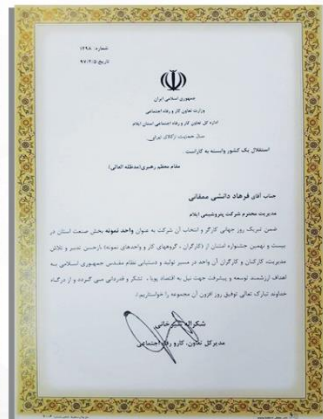 شماره: ۱۲۹۸
تاریخ: ۹۷/۲/۵
جمهوری اسلامی ایران
وزارت تعاون کار و رفاه اجتماعی
اداره کل تعاون کار و رفاه اجتماعی استان ایلام
استقلال یک کشور وابسته به کار است.
مقام معظم رهبری (مدظله العالی)
جناب آقای فرهاد دانشی ممقانی
مدیریت محترم شرکت پتروشیمی ایلام
ضمن تبریک روز جهانی کارگر و انتخاب آن شرکت به عنوان واحد نمونه بخش صنعت استان در
بیست و نهمین جشنواره امتنان از (کارگران ، گروههای کار و واحدهای نمونه) از حسن تدبیر و تلاش
مدیریت، کارکنان و کارگران آن واحد در مسیر تولید و دستیابی نظام مقدس جمهوری اسلامی به
اهداف ارزشمند توسعه و پیشرفت جهت نیل به اقتصاد پویا ، تشکر و قدردانی می گردد و از درگاه
خداوند تبارک تعالی توفیق روز افزون آن مجموعه را خواستاریم.
شکراله شیرخانی
مدیرکل تعاون، کار و رفاه اجتماعی